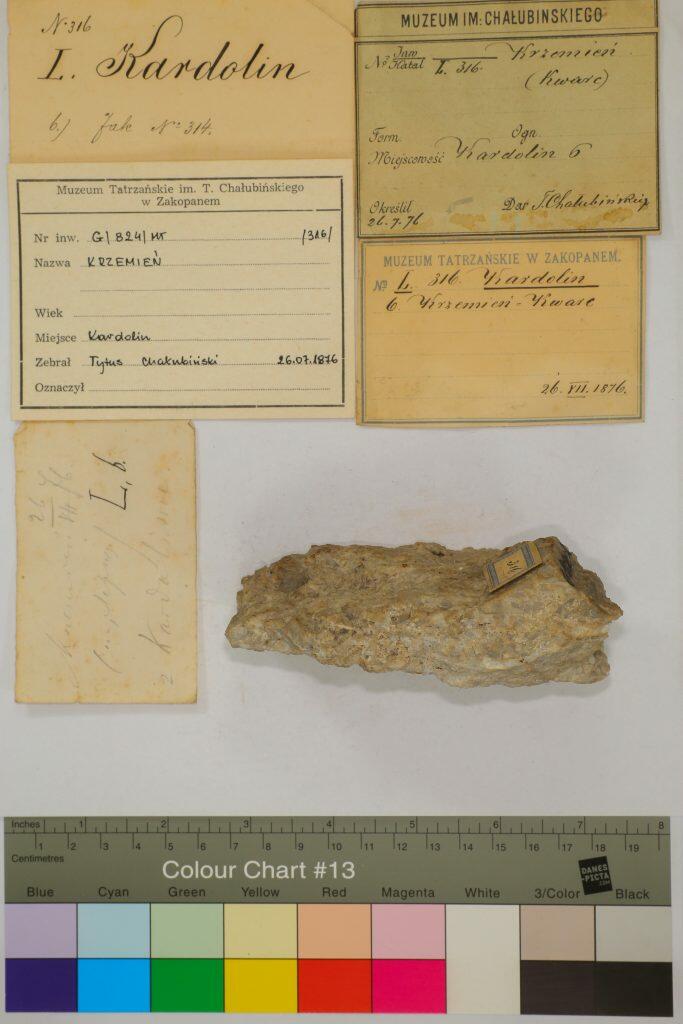 N. 316
I. Kardolin
6.) Jak No 314.
MUZEUM IM: CHAŁUBINSKIEGO
No Inw Katal L. 316. Krzemień
(Kwarc)
Form. Ogn.
Miejscowość Kardolin 6
Określił Dar T. Chałubińskiego
26.7.76
Muzeum Tatrzańskie im. T. Chałubińskiego
w Zakopanem
Nr inw. G/824/MT /316/
Nazwa KRZEMIEŃ
Wiek
Miejsce Kardolin
Zebrał Tytus Chałubiński 26.07.1876
Oznaczył
MUZEUM TATRZAŃSKIE W ZAKOPANEM.
No L. 316. Kardolin
6. Krzemień-Kwarc
26. VII. 1876.
L, b.
26
VII 76.
316
Inches 1 2 3 4 5 6 7 8
1 2 3 4 5 6 7 8 9 10 11 12 13 14 15 16 17 18 19
Centimetres
Colour Chart #13
DANES
-PICTA
.COM
Blue Cyan Green Yellow Red Magenta White 3/Color Black